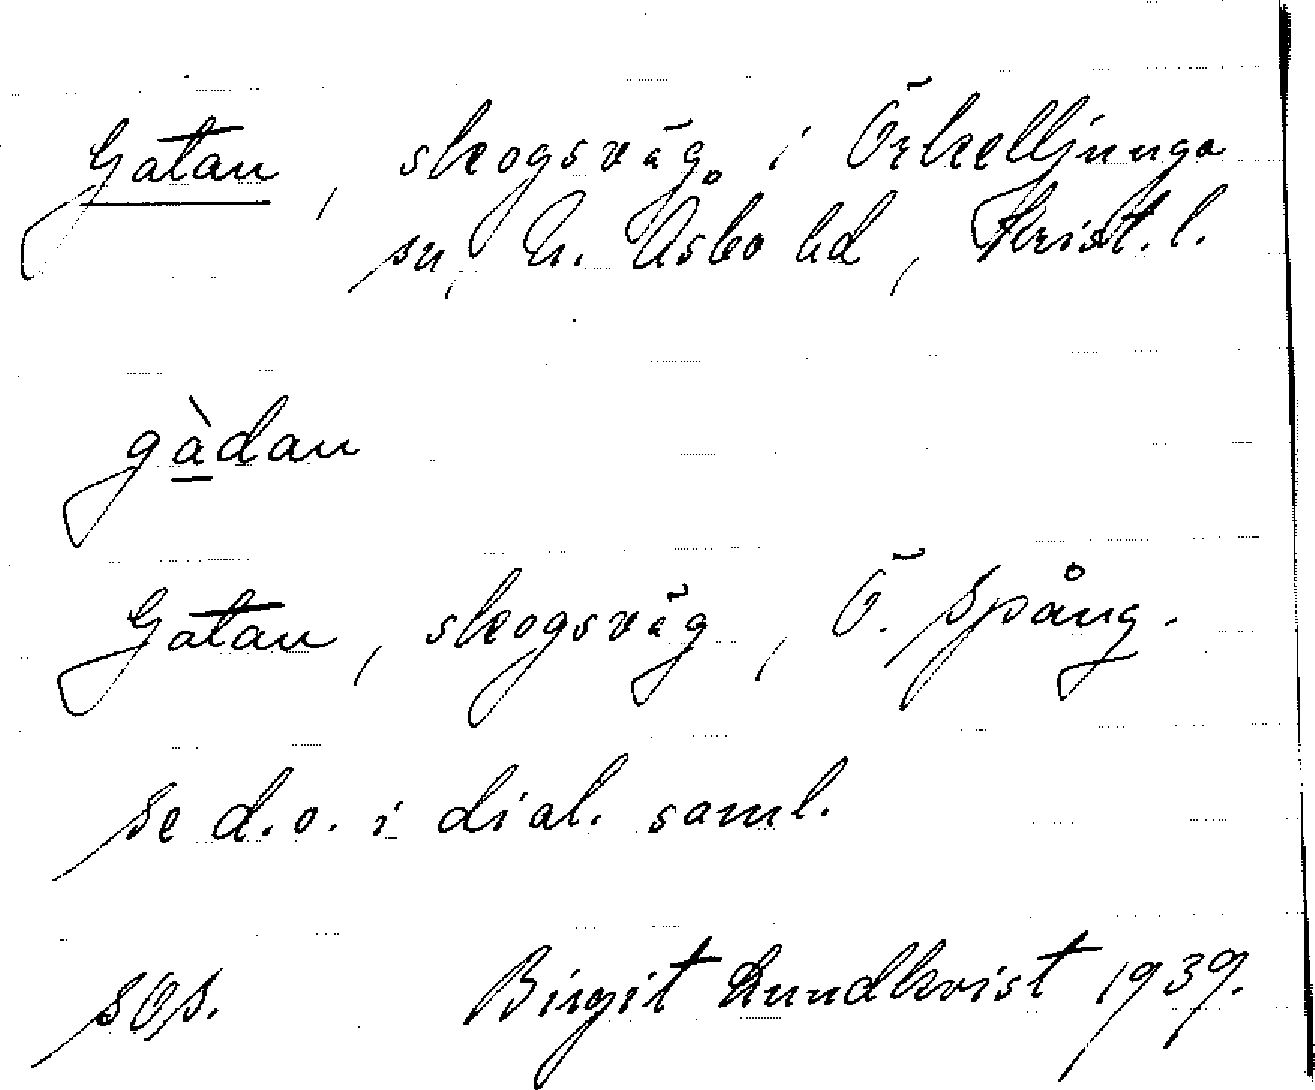 Gatan, skogsväg i Örkelljunga
sn, N. Åsbo hd, Krist. l.
gàdan
Gatan, skogsväg, Ö. Spång.
Se d.o. i dial. saml.
SOS. Birgit Lundkvist 1939.